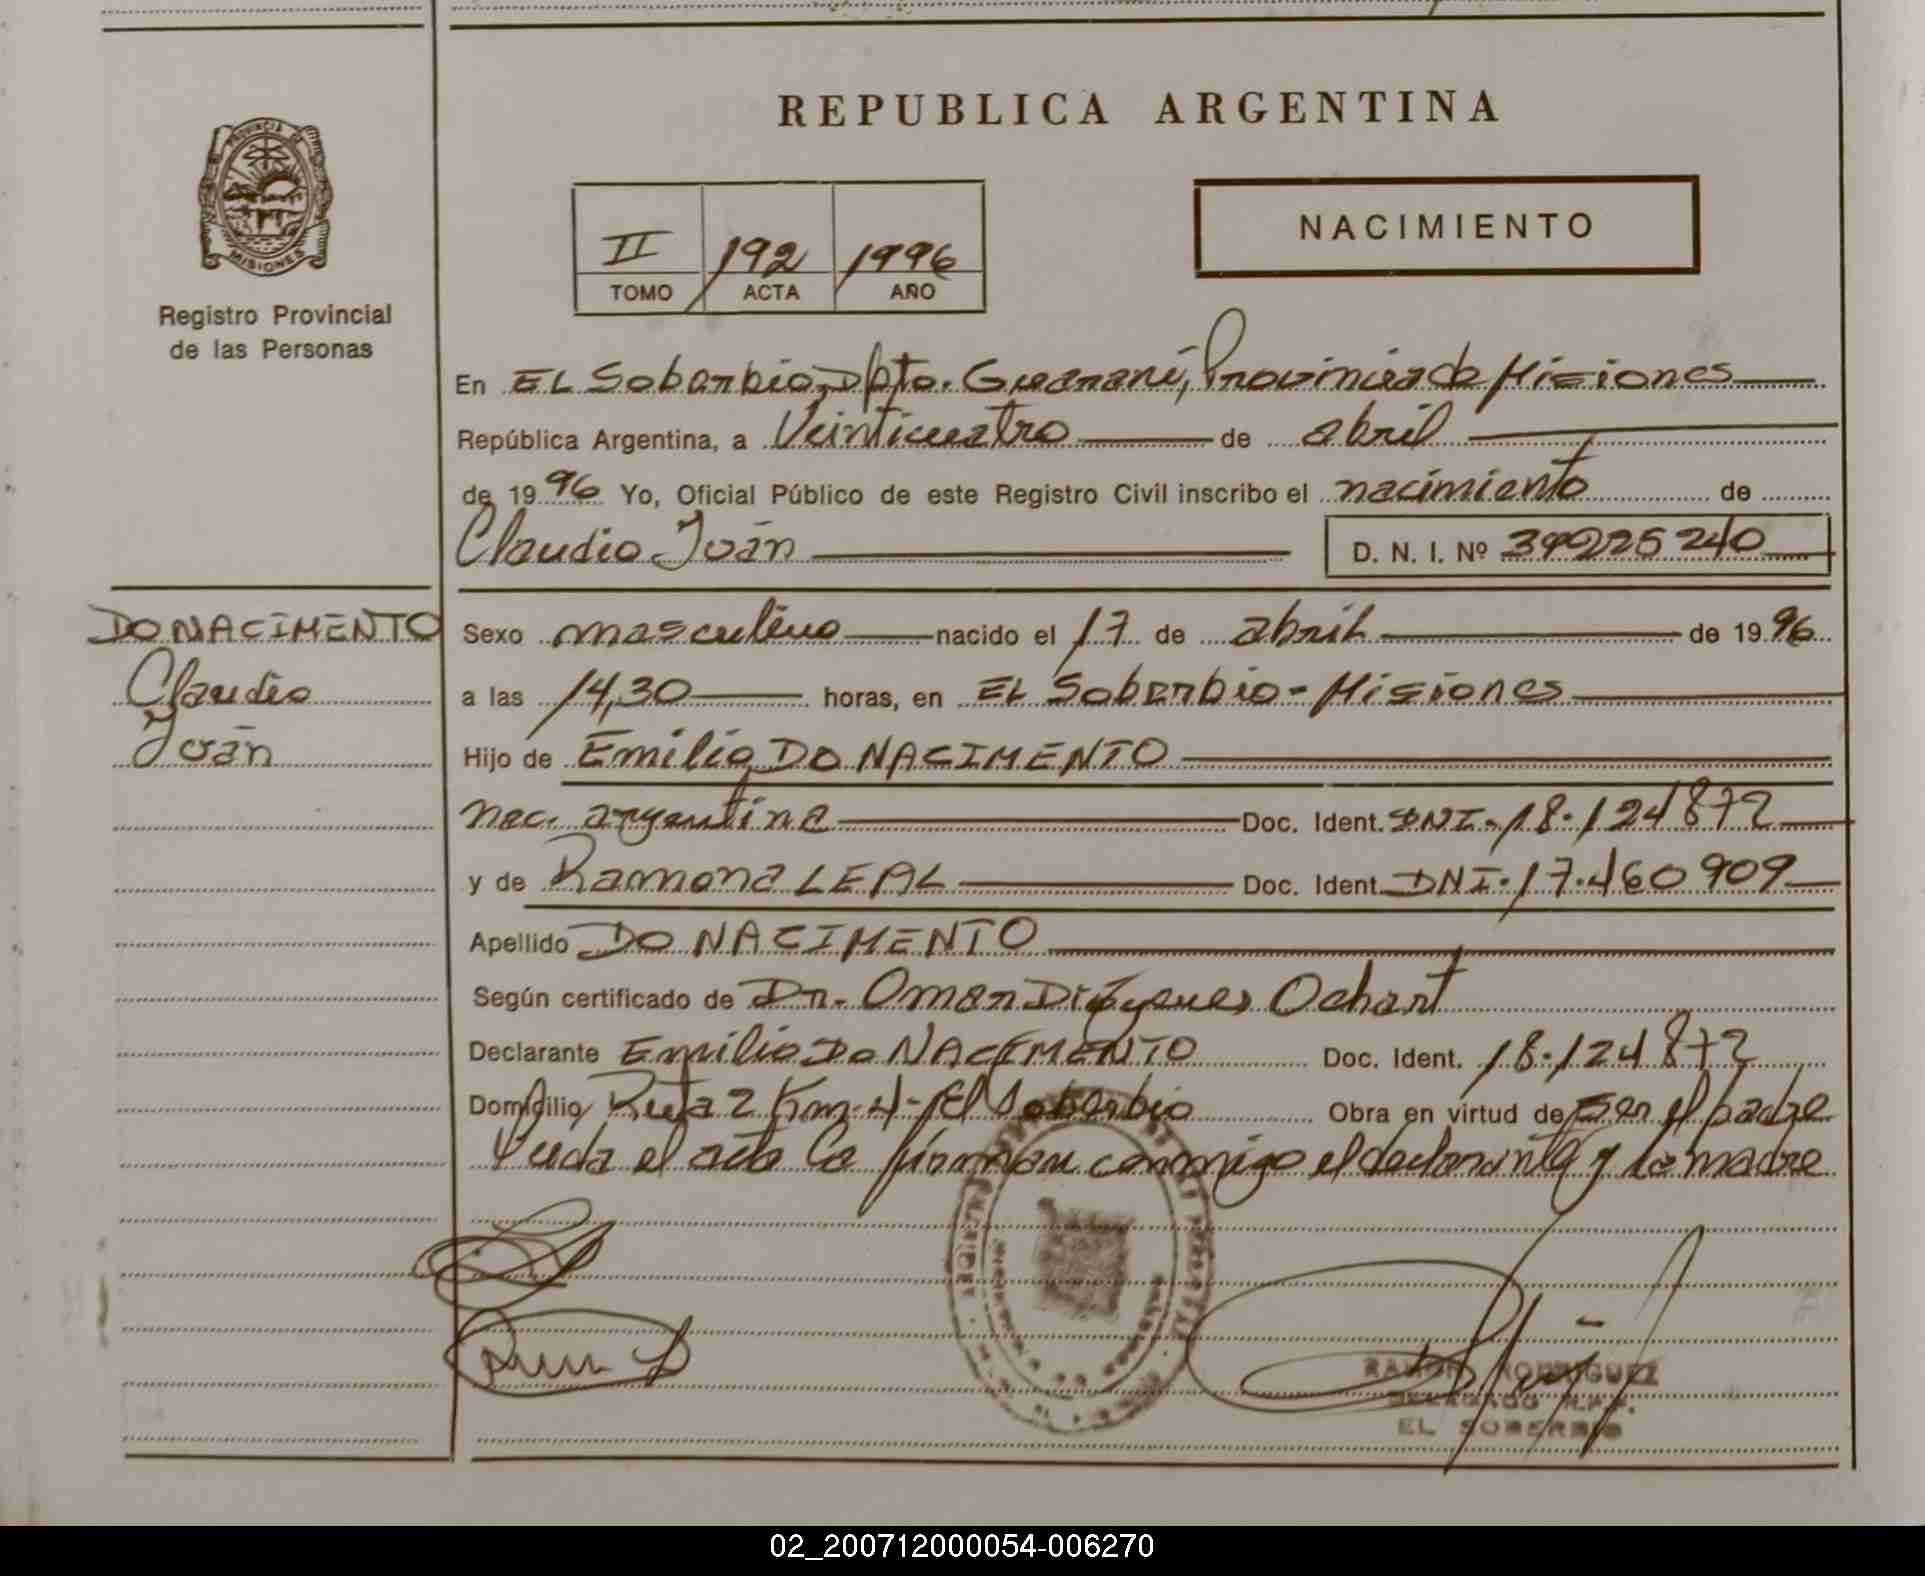 REPUBLICA ARGENTINA
PROVINCIA DE
MISIONES
Registro Provincial
de las Personas
II 192 1996
TOMO ACTA AÑO
NACIMIENTO
En EL Soberbio, Dpto. Guaraní, Provincia de Misiones
República Argentina, a Veinticuatro de abril
de 1996 Yo, Oficial Público de este Registro Civil inscribo el nacimiento de
Claudio Iván D. N. I. Nº 39225240
DO NACIMENTO
Claudio
Iván
Sexo masculino nacido el 17 de abril de 1996
a las 14,30 horas, en EL Soberbio - Misiones
Hijo de Emilio DO NACIMENTO
nac. argentina Doc. Ident. DNI. 18.124872
y de Ramona LEAL Doc. Ident. DNI. 17.460909
Apellido DO NACIMENTO
Según certificado de Dr. Omar Diógenes Ochart
Declarante Emilio DO NACIMENTO Doc. Ident. 18.124872
Domicilio Ruta 2 Km. 4 - El Soberbio Obra en virtud de Ser el padre
Leída el acta la firman conmigo el declarante y la madre
RAMON RODRIGUEZ
DELEGADO R.P.P.
EL SOBERBIO
02_200712000054-006270